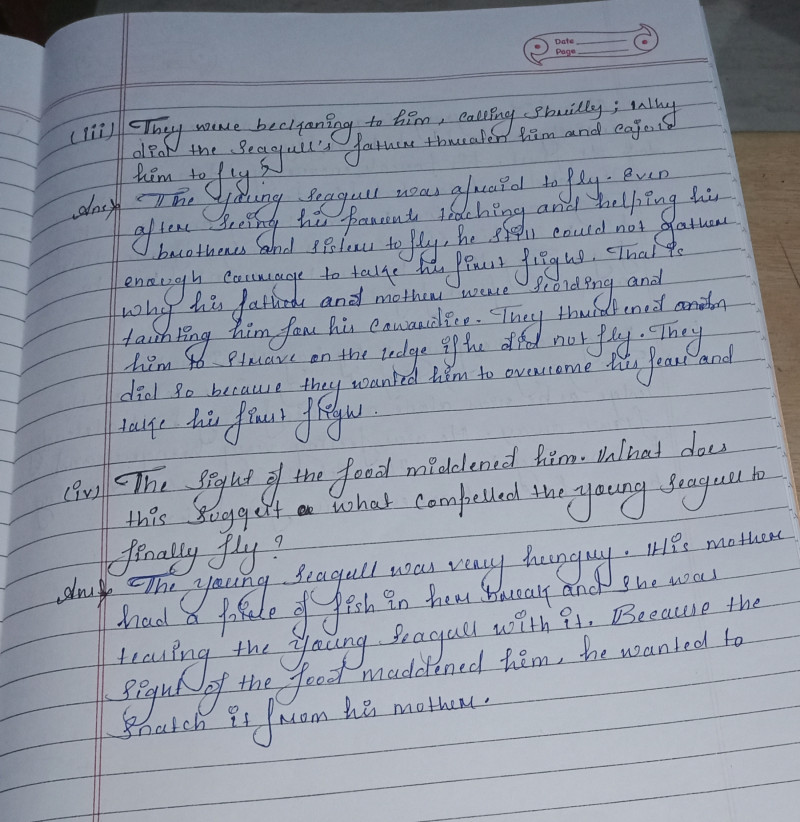 Date
Page
(iii) They were beckoning to him, calling shrilly; Why
did the Seagull's father threaten him and cajole
him to fly?
Ans The young Seagull was afraid to fly. Even
after seeing his parents teaching and helping his
brothers and sisters to fly, he still could not gather
enough courage to take his first flight. That is
why his father and mother were scolding and
taunting him for his cowardice. They threatened
him to starve on the ledge if he did not fly. They
did so because they wanted him to overcome his fear and
take his first flight.
(iv) The sight of the food middened him. What does
this suggest what compelled the young seagull to
finally fly?
Ans The young Seagull was very hungry. His mother
had a of fish in her and she was
teasing the young Seagull with it. Because the
sight of the food maddened him, he wanted to
snatch it from his mother.